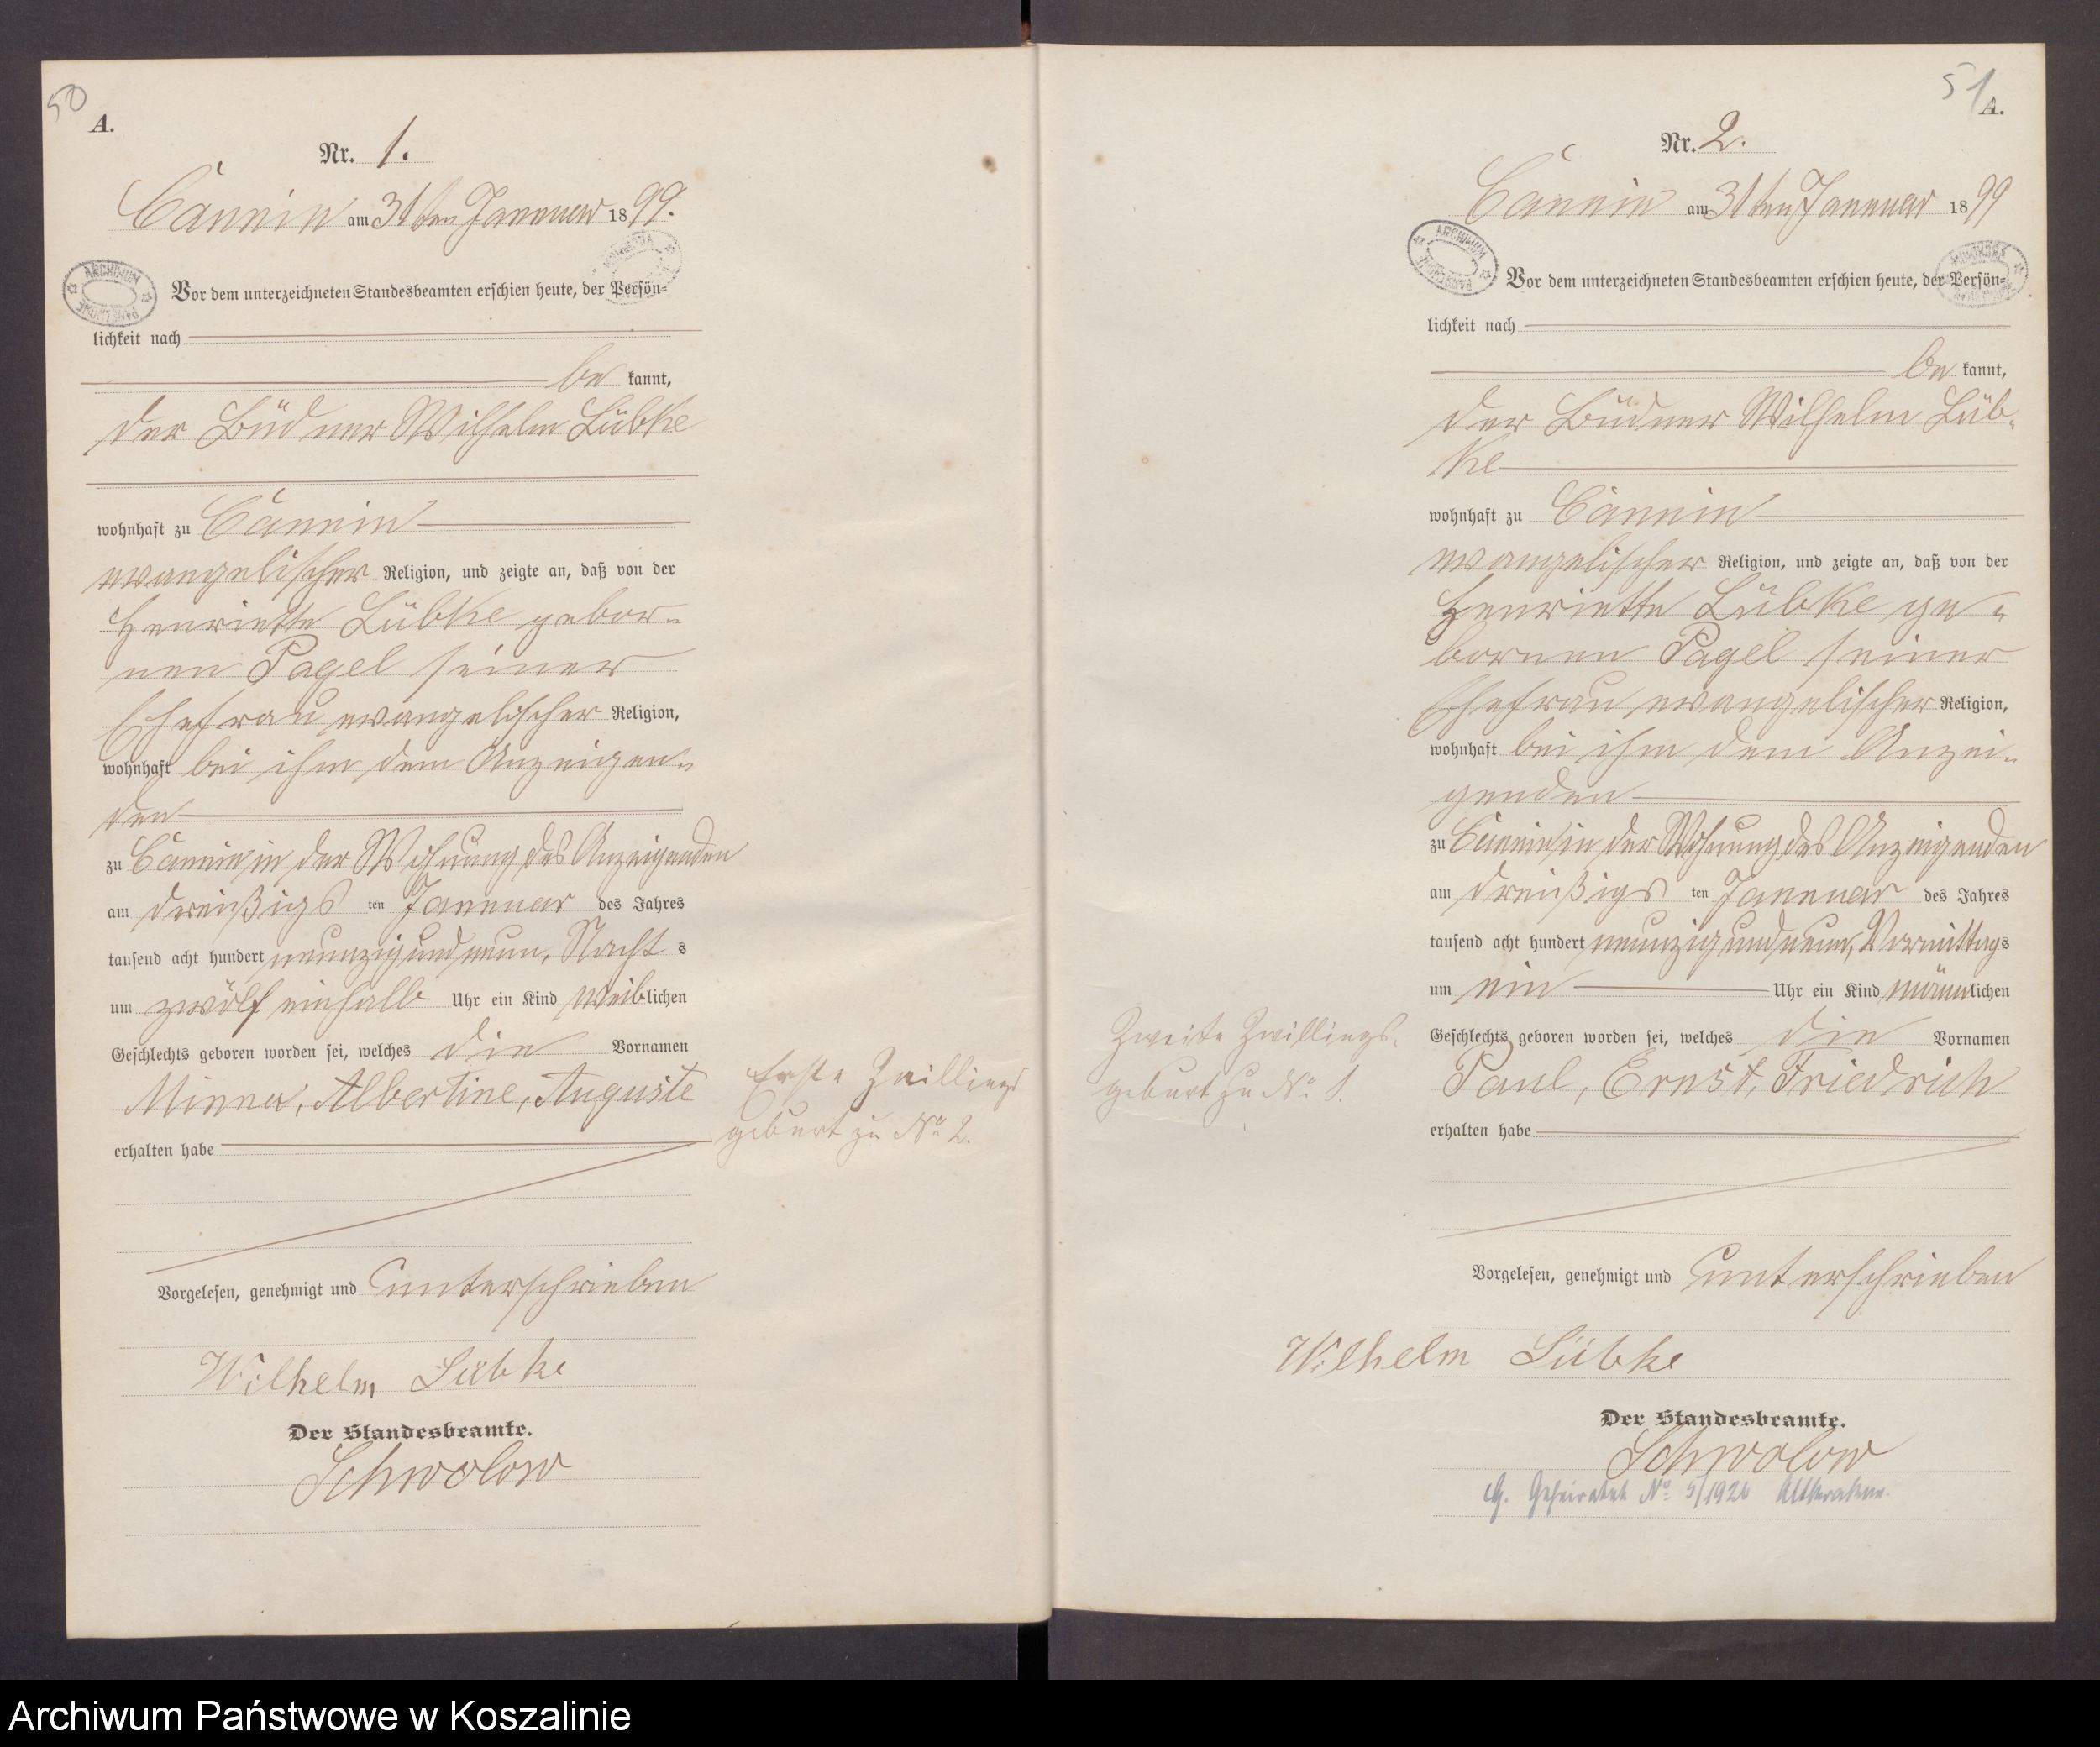 50
A.
Nr. 1.
Cannin am 31ten Januar 1899.
ARCHIWUM PAŃSTWOWE
Vor dem unterzeichneten Standesbeamten erschien heute, der Persön=
lichkeit nach
be kannt,
der Büdner Wilhelm Lübke
wohnhaft zu Cannin
evangelischer Religion, und zeigte an, daß von der
Henriette Lübke gebor=
nen Pagel seiner
Ehefrau, evangelischer Religion,
wohnhaft bei ihm dem Anzeigen=
den
zu Cannin, in der Wohnung des Anzeigenden
am dreißigs ten Januar des Jahres
tausend acht hundert neunzig und neun, Nacht s
um zwölf einhalb Uhr ein Kind weiblichen
Geschlechts geboren worden sei, welches die Vornamen
Minna, Albertine, Auguste
Erste Zwillings
geburt zu No 2.
erhalten habe
Vorgelesen, genehmigt und unterschrieben
Wilhelm Lübke
Der Standesbeamte.
Schwolow
51
A.
Nr. 2.
Cannin am 31ten Januar 1899
ARCHIWUM PAŃSTWOWE
Vor dem unterzeichneten Standesbeamten erschien heute, der Persön=
lichkeit nach
be kannt,
der Büdner Wilhelm Lüb=
ke
wohnhaft zu Cannin
evangelischer Religion, und zeigte an, daß von der
Henriette Lübke ge=
bornen Pagel seiner
Ehefrau, evangelischer Religion,
wohnhaft bei ihm dem Anzei=
genden
zu Cannin, in der Wohnung des Anzeigenden
am dreißigs ten Januar des Jahres
tausend acht hundert neunzig und neun, Vormittags
um ein Uhr ein Kind männlichen
Geschlechts geboren worden sei, welches die Vornamen
Zweite Zwillings=
geburt zu No 1.
Paul, Ernst, Friedrich
erhalten habe
Vorgelesen, genehmigt und unterschrieben
Wilhelm Lübke
Der Standesbeamte.
Schwolow
Geheiratet No 5/1926
Archiwum Państwowe w Koszalinie